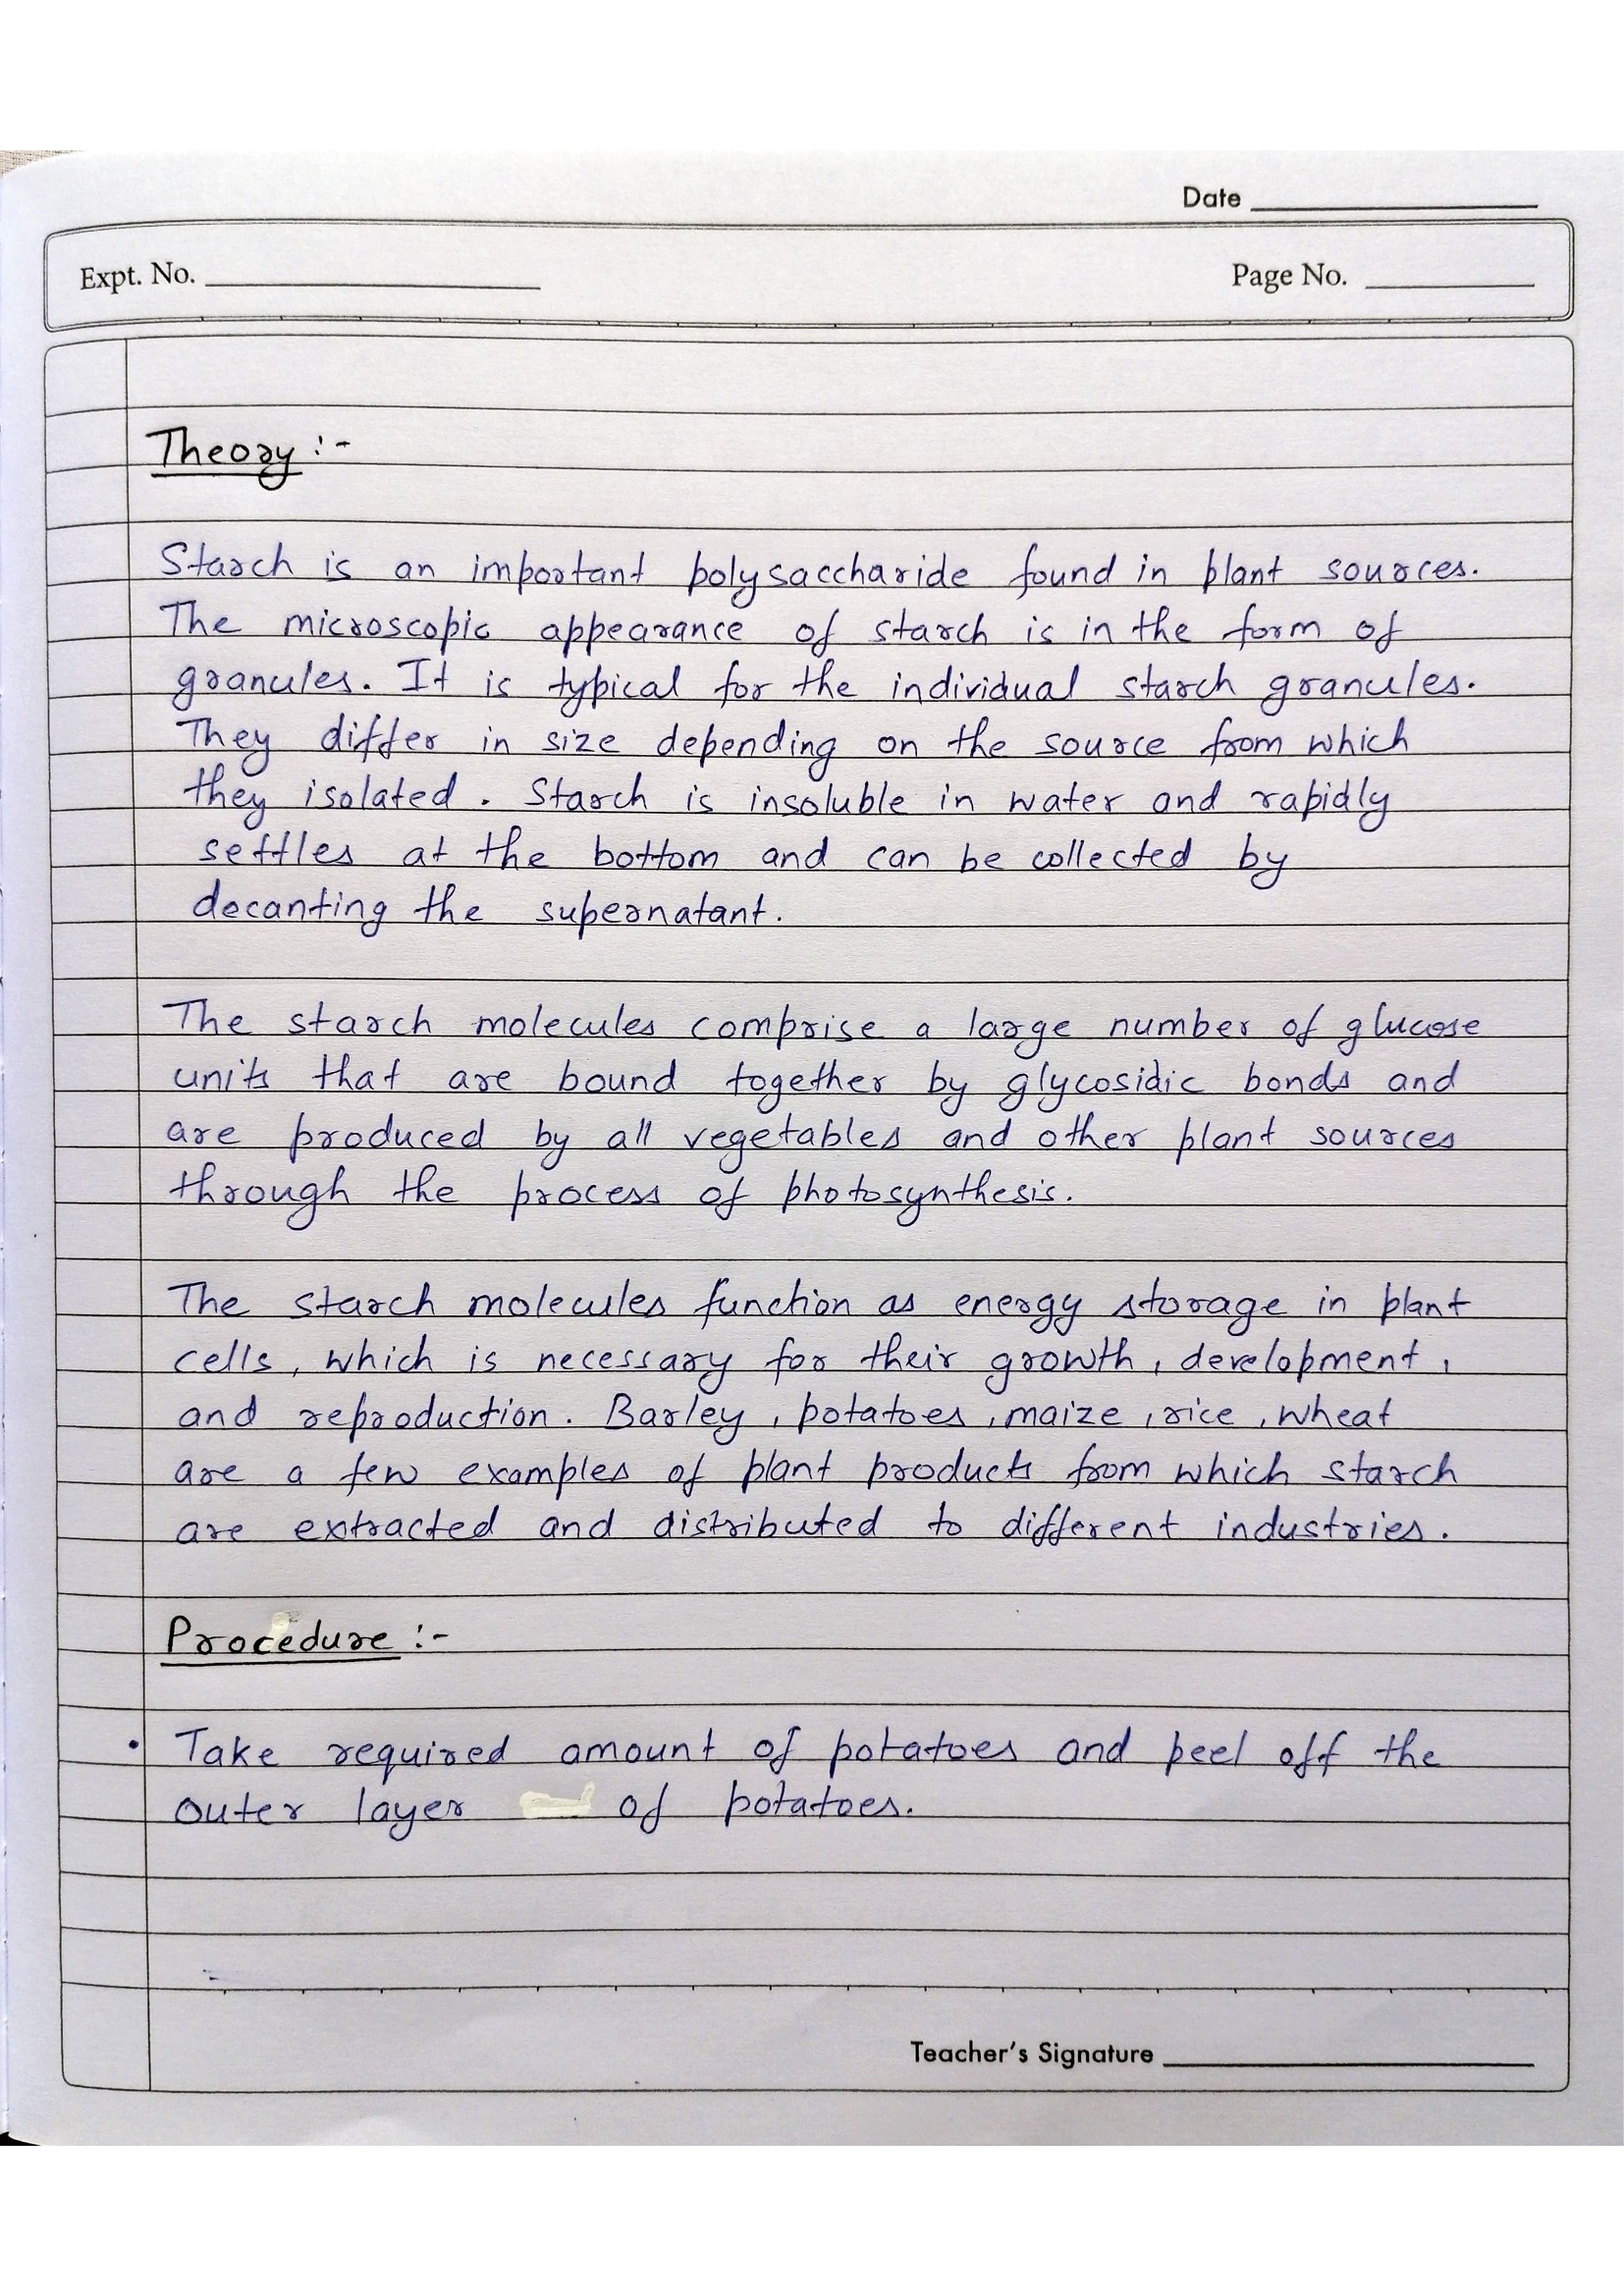 Date
Expt. No.
Page No.
Theory :-
Starch is an important polysaccharide found in plant sources.
The microscopic appearance of starch is in the form of
granules. It is typical for the individual starch granules.
They differ in size depending on the source from which
they isolated. Starch is insoluble in water and rapidly
settles at the bottom and can be collected by
decanting the supernatant.
The starch molecules comprise a large number of glucose
units that are bound together by glycosidic bonds and
are produced by all vegetables and other plant sources
through the process of photosynthesis.
The starch molecules function as energy storage in plant
cells, which is necessary for their growth, development,
and reproduction. Barley, potatoes, maize, rice, wheat
are a few examples of plant products from which starch
are extracted and distributed to different industries.
Procedure :-
• Take required amount of potatoes and peel off the
outer layer of potatoes.
Teacher's Signature